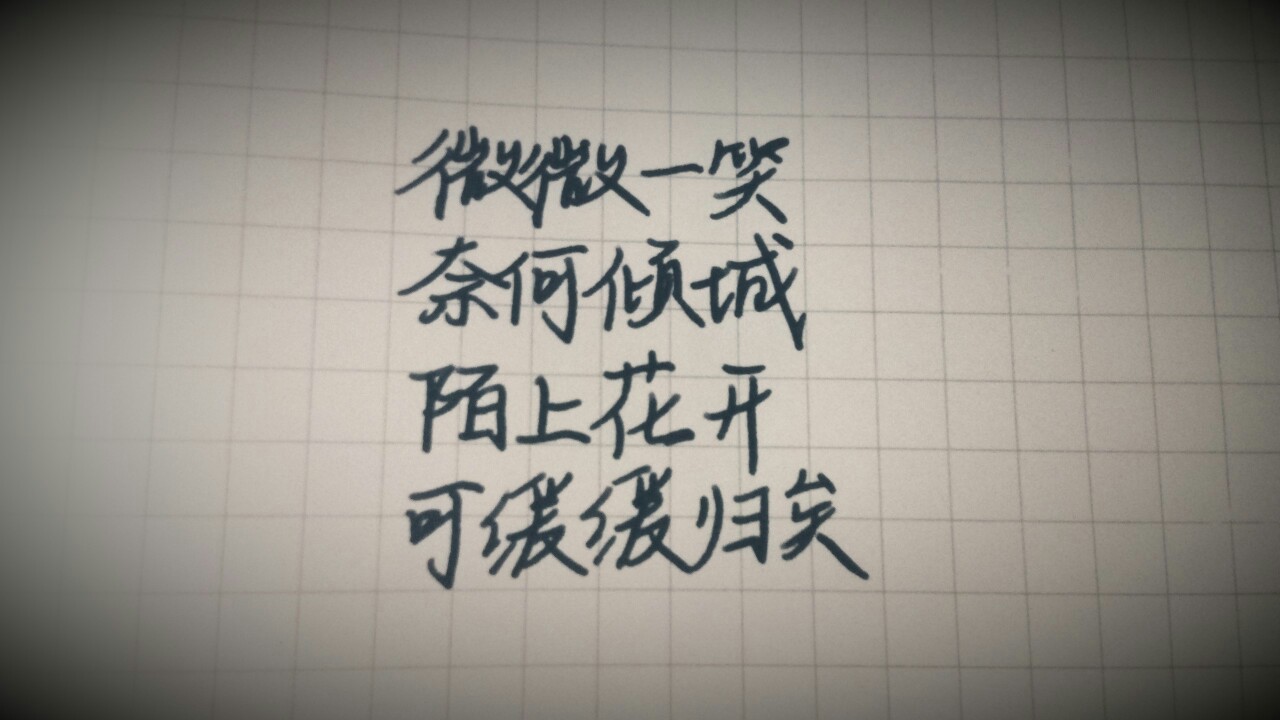 微微一笑
奈何倾城
陌上花开
可缓缓归矣